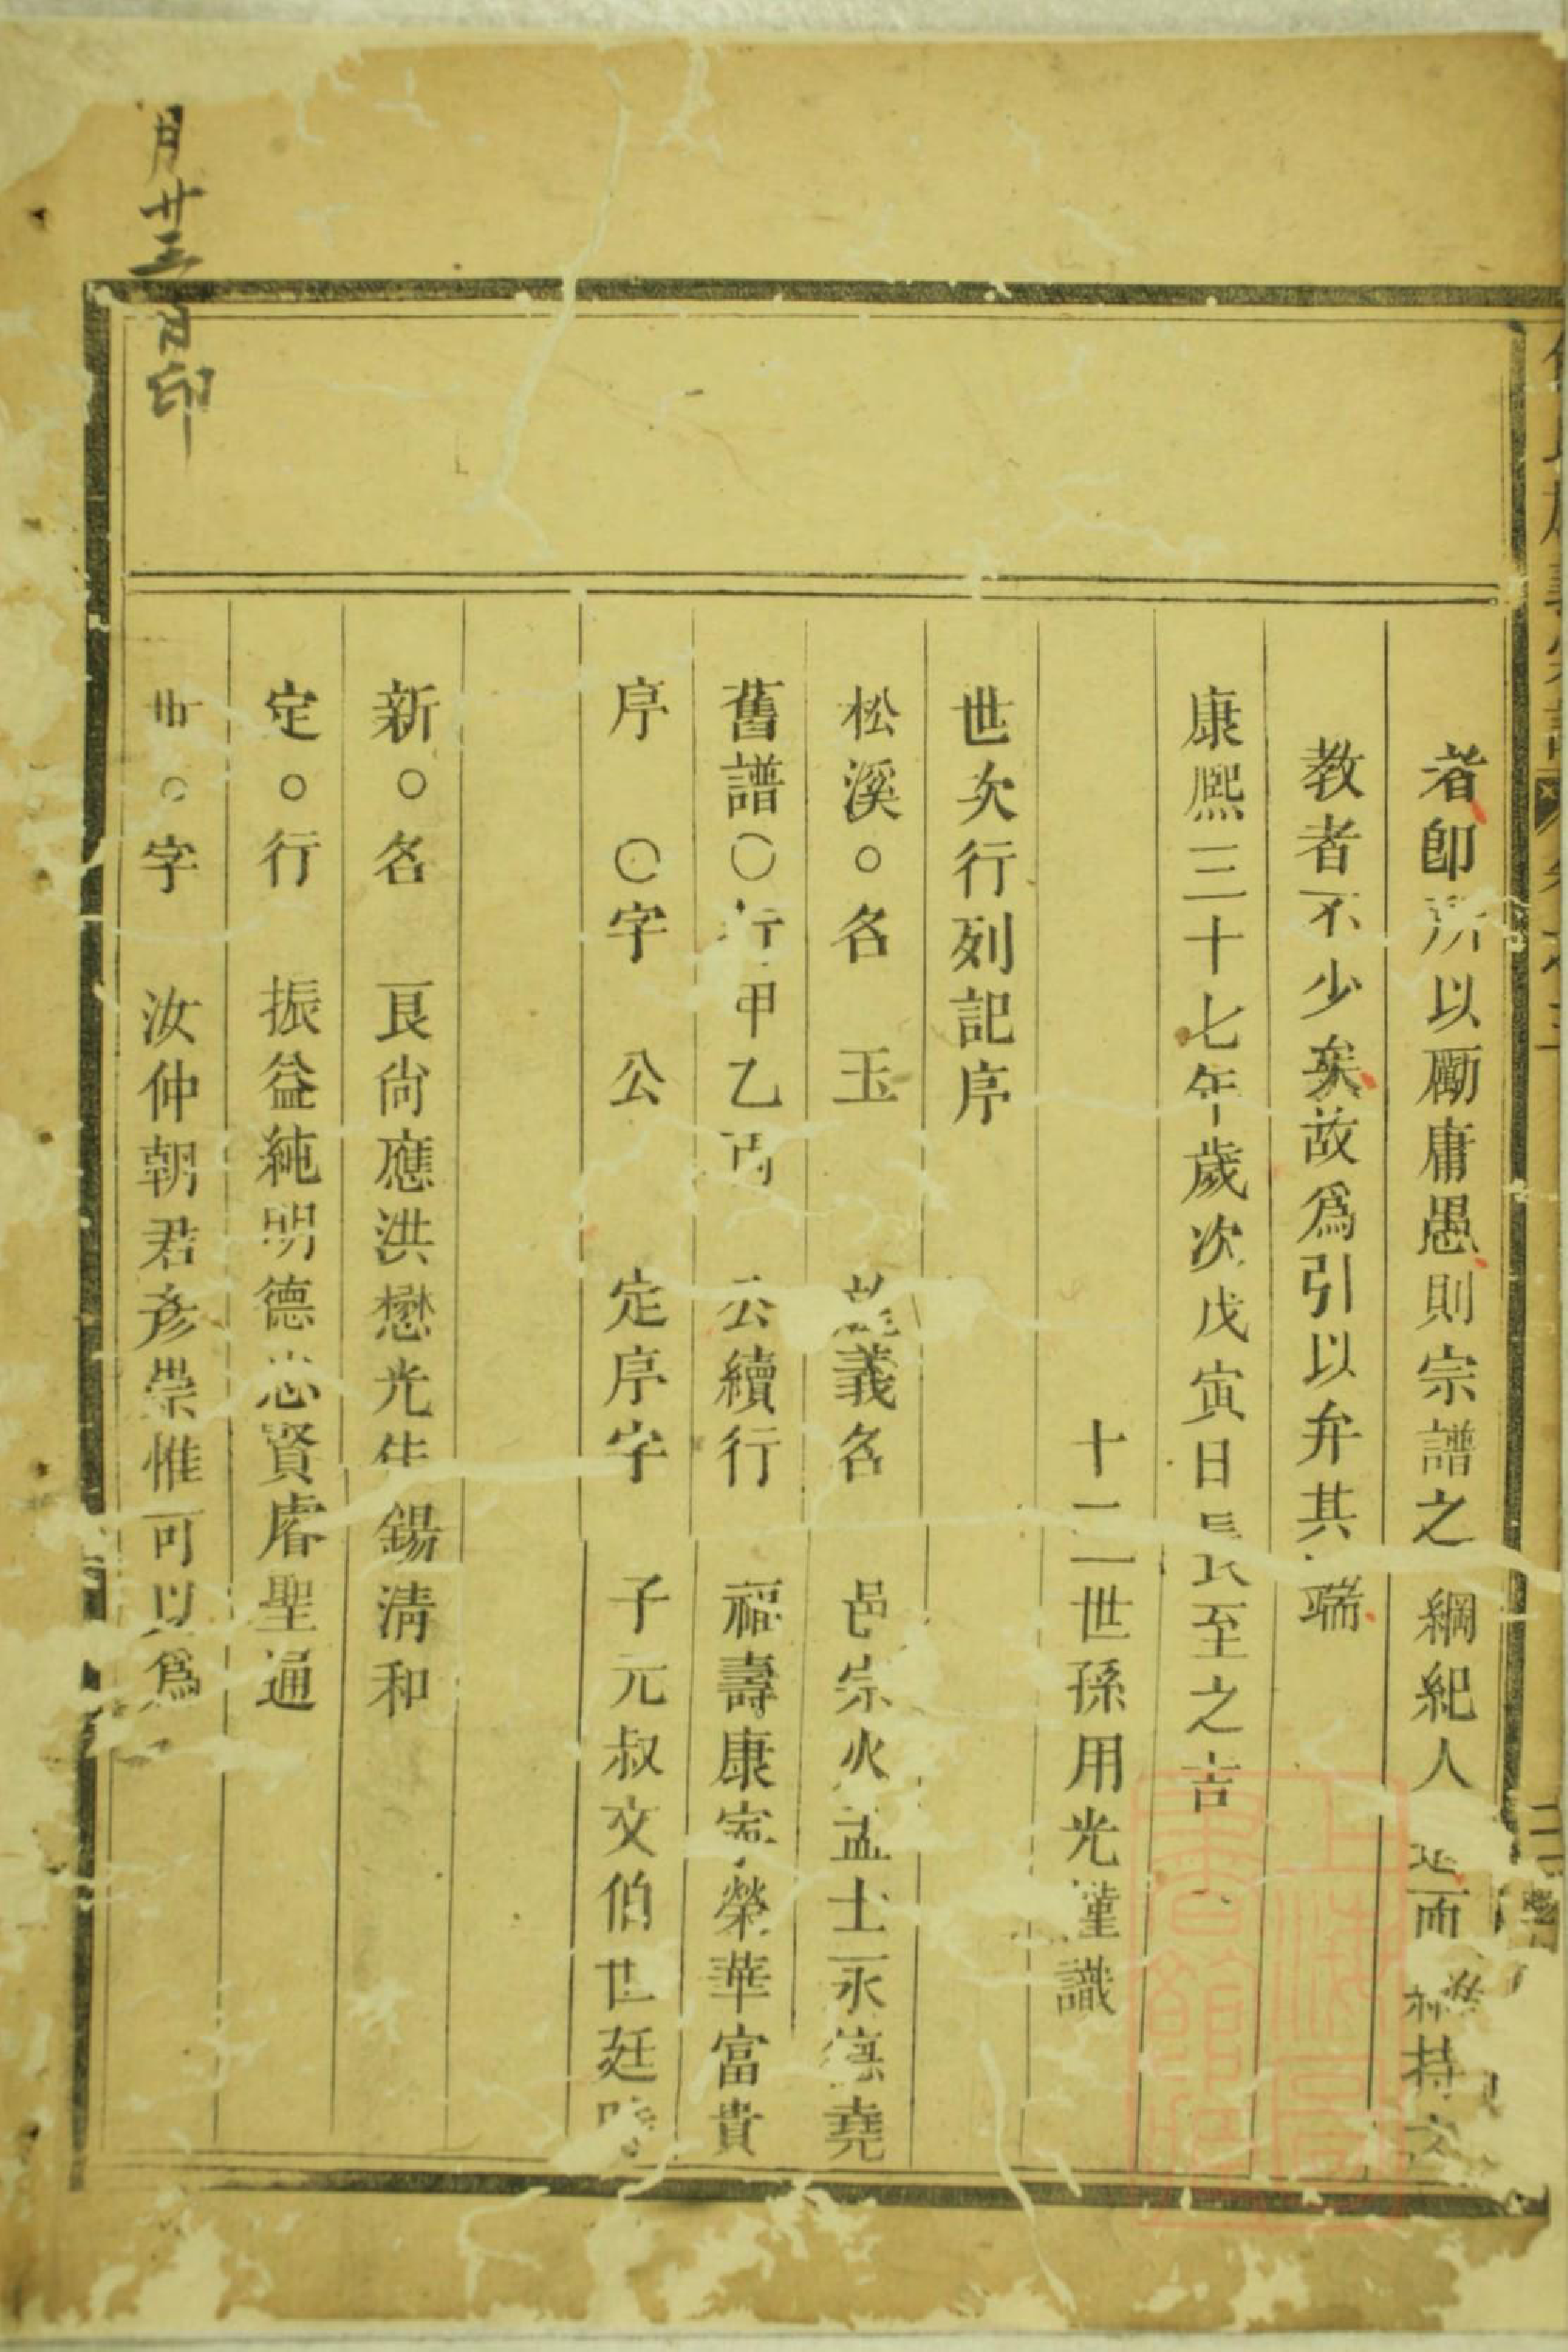 者卽所以勵庸愚則宗譜之綱紀人 而 持
教者不少矣故爲引以弁其端
康熙三十七年歲次戊寅日長至之吉
十二世孫用光謹識
世次行列記序
松溪○名 玉 義名 邑宗火孟士永 堯
舊譜○行甲乙丙 云續行 福壽康寧榮華富貴
序 ○字 公 定序字 子元叔文伯世廷
新○名 良尙應洪懋光 錫淸和
定○行 振益純明德忠賢睿聖通
○字 汝仲朝君彥崇惟可以爲
月廿三日印
上海圖書館藏